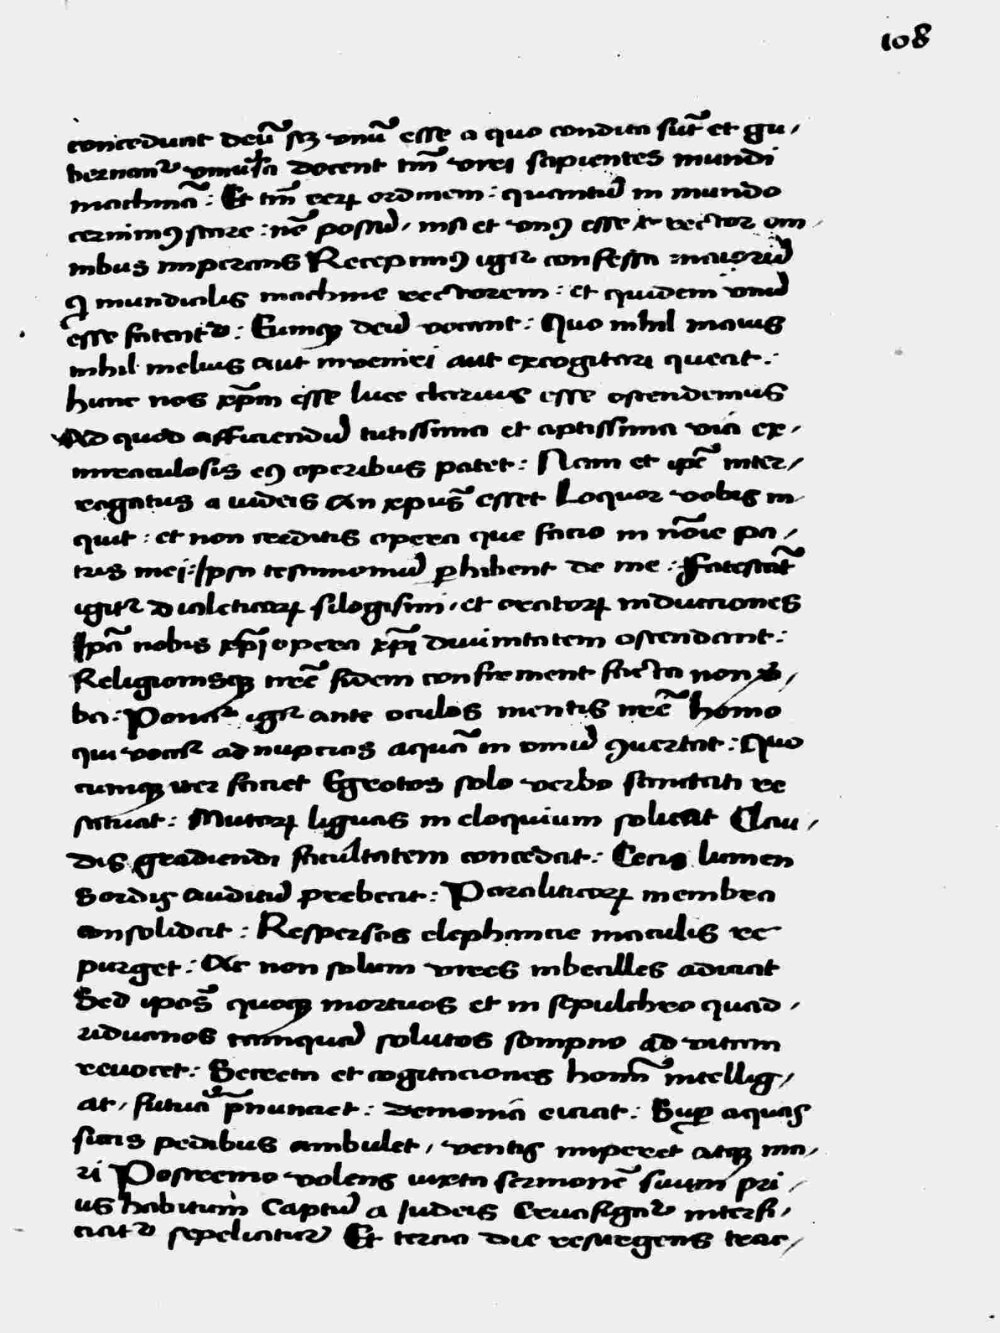 108
concedunt deū scz vnū esse a quo condita sūt et gu,
bernanr vniuersa docent tm̄ vrei sapientes mundi
machinā : Et tm̄ rerꝝ ordinem : quantū in mundo
cernimꝰ stare : nec̄ possū, nisi et vnꝰ esse & rector om,
nibus imperans Recepimꝰ igir confessa maiorū
ꝙ mundialis machine rectorem : et quidem vnū
esse fatentr : Eumqꝫ deū vocant : Quo nihil maius
nihil melius aut inveniri aut excogitari queat :
hunc nos xp̄m esse luce clarius esse ostendemus
Ad quod afficiendū tutissima et aptissima via ex,
miraculosis eꝰ operibus patet : Nam et ip̄e inter,
rogatus a iudeis An xpūs esset Loquor vobis in
quit : et non creditis opera que facio in nōie pa,
tris mei : Ipsa testimoniū ꝑhibent de me :
igitr dialeticorꝝ silogismi, et oratorꝝ inducciones
Ipā nobis xp̄i opera xp̄i diuinitatem ostendant :
Religionisqꝫ nr̄e fidem confirment facta non v,
ba : Ponar igir ante oculos mentis nr̄e homo
qui vocatr ad nupcias aquā in vinū ꝯuertat : Quo
cumqꝫ iter faciet Egrotos solo verbo sanitati re
stituat : Mutorꝝ liguas in eloquium soluat Clau,
dis gradiendi facultatem concedat : Cecis lumen
Sordis auditū prebeat : Paraliticorꝝ membra
consolidat : Respersos elephancie maculis re
purget : Ac non solum vires inbecilles adiciat
Sed ipōs quoqꝫ mortuos et in sepulchro quad,
riduanos tamquā solutos sompno ad vitam
reuocet : Secreta et cogitaciones homī intellig,
at, futurā p̄nunciet : demonia eiciat : Suꝑ aquas
siccis pedibus ambulet, ventis imperet atqꝫ ma,
ri Postremo volens iuxta sermonē suum pri,
us habitum Captū a Iudeis Crucifigar interfi,
ciatr sepeliatur Et tercia die resurgens trac,